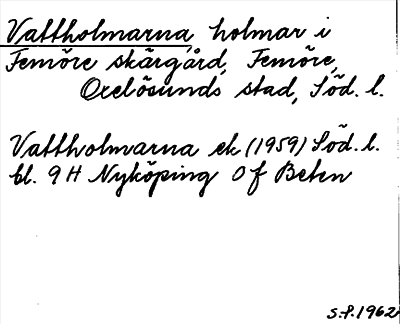 Vattholmarna, holmar i
Femöre skärgård, Femöre,
Oxelösunds stad, Söd. l.
Vattholmarna ek (1959) Söd. l.
bl. 9 H Nyköping 0 f Beten
S.P. 1962